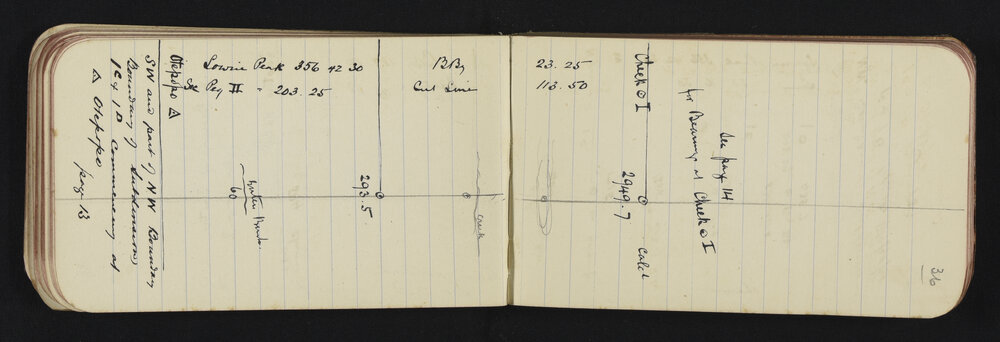 SW and part of NW Boundary
Boundary of Subdivisions
1C & 1D Commencing at
△ Otepopo page 13
Otepopo △
Lowrie Peak 356 42 30
Peg II = 203.25
60
293.5
creek
BBy
Cut Line
23.25
113.50
Check ⊙ I
2949.7 calcd
See page 14
for Bearings at Check ⊙ I
36